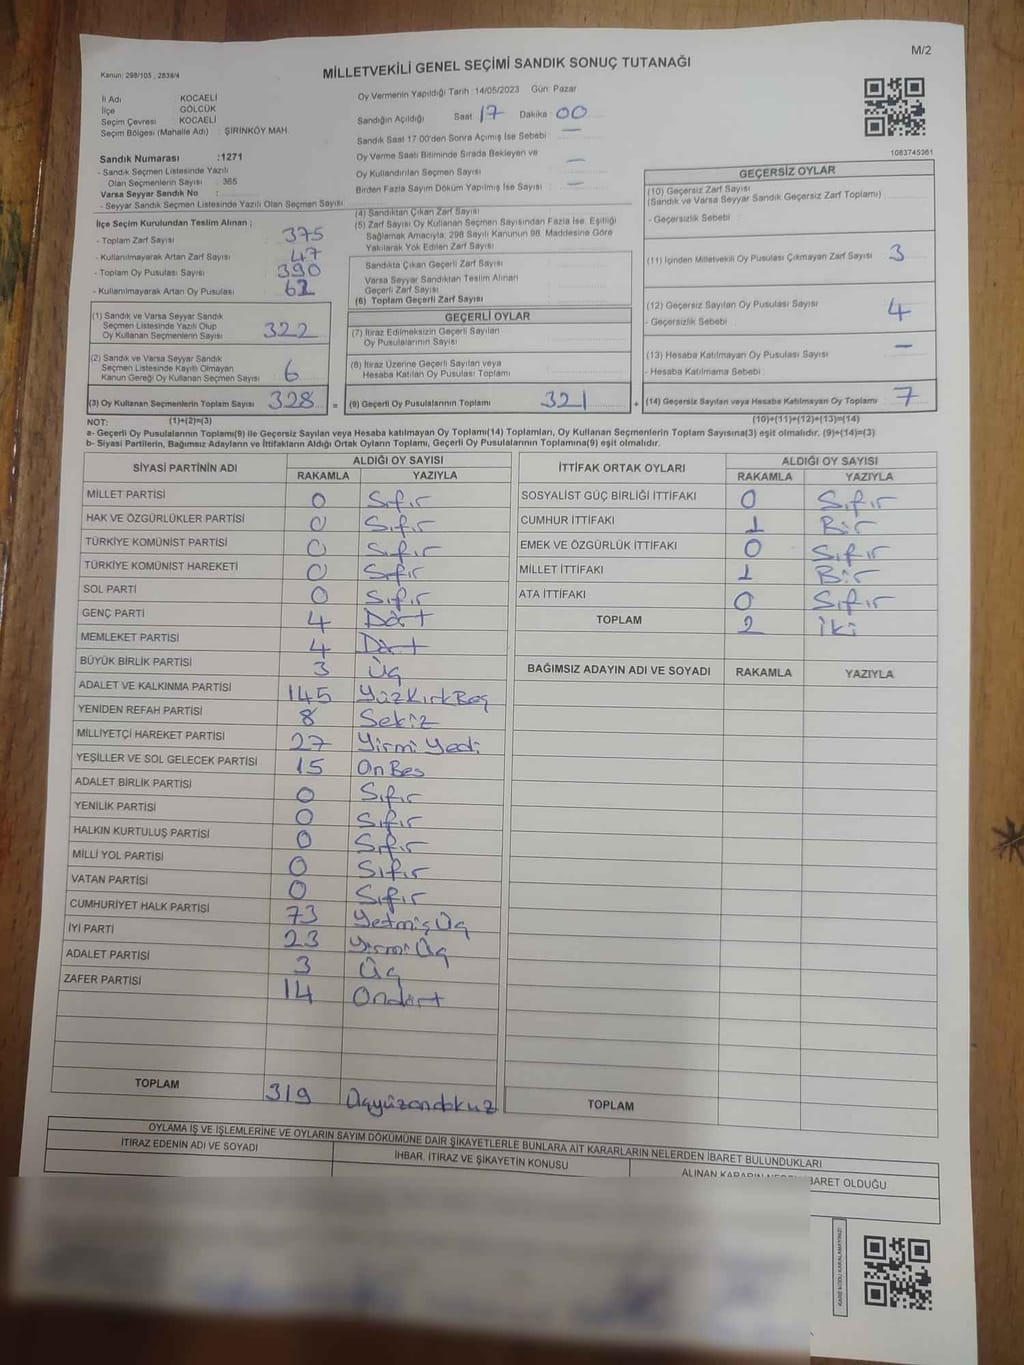 M/2
Kanun: 298/105 , 2839/4
MİLLETVEKİLİ GENEL SEÇİMİ SANDIK SONUÇ TUTANAĞI
İli Adı KOCAELİ
İlçe GÖLCÜK
Seçim Çevresi KOCAELİ
Seçim Bölgesi (Mahalle Adı) : ŞİRİNKÖY MAH.
Sandık Numarası :1271
- Sandık Seçmen Listesinde Yazılı
Olan Seçmenlerin Sayısı : 365
Varsa Seyyar Sandık No :
- Seyyar Sandık Seçmen Listesinde Yazılı Olan Seçmen Sayısı
Oy Vermenin Yapıldığı Tarih : 14/05/2023 Gün: Pazar
Sandığın Açıldığı Saat 17 Dakika 00
Sandık Saat 17:00'den Sonra Açılmış İse Sebebi : —
Oy Verme Saati Bitiminde Sırada Bekleyen ve
Oy Kullandırılan Seçmen Sayısı —
Birden Fazla Sayım Döküm Yapılmış İse Sayısı : —
1083745361
İlçe Seçim Kurulundan Teslim Alınan ;
- Toplam Zarf Sayısı 375
- Kullanılmayarak Artan Zarf Sayısı 47
- Toplam Oy Pusulası Sayısı 390
- Kullanılmayarak Artan Oy Pusulası 62
(1) Sandık ve Varsa Seyyar Sandık
Seçmen Listesinde Yazılı Olup
Oy Kullanan Seçmenlerin Sayısı 322
(2) Sandık ve Varsa Seyyar Sandık
Seçmen Listesinde Kayıtlı Olmayan
Kanun Gereği Oy Kullanan Seçmen Sayısı 6
(3) Oy Kullanan Seçmenlerin Toplam Sayısı 328 =
(4) Sandıktan Çıkan Zarf Sayısı
(5) Zarf Sayısı Oy Kullanan Seçmen Sayısından Fazla İse, Eşitliği
Sağlamak Amacıyla; 298 Sayılı Kanunun 98. Maddesine Göre
Yakılarak Yok Edilen Zarf Sayısı
Sandıkta Çıkan Geçerli Zarf Sayısı
Varsa Seyyar Sandıktan Teslim Alınan
Geçerli Zarf Sayısı
(6) Toplam Geçerli Zarf Sayısı
GEÇERLİ OYLAR
(7) İtiraz Edilmeksizin Geçerli Sayılan
Oy Pusulalarının Sayısı
(8) İtiraz Üzerine Geçerli Sayılan veya
Hesaba Katılan Oy Pusulası Toplamı
(9) Geçerli Oy Pusulalarının Toplamı 321 +
GEÇERSİZ OYLAR
(10) Geçersiz Zarf Sayısı
(Sandık ve Varsa Seyyar Sandık Geçersiz Zarf Toplamı)
- Geçersizlik Sebebi :
(11) İçinden Milletvekili Oy Pusulası Çıkmayan Zarf Sayısı 3
(12) Geçersiz Sayılan Oy Pusulası Sayısı 4
- Geçersizlik Sebebi :
(13) Hesaba Katılmayan Oy Pusulası Sayısı —
- Hesaba Katılmama Sebebi :
(14) Geçersiz Sayılan veya Hesaba Katılmayan Oy Toplamı 7
NOT: (1)+(2)=(3) (10)+(11)+(12)+(13)=(14)
a- Geçerli Oy Pusulalarının Toplamı(9) ile Geçersiz Sayılan veya Hesaba katılmayan Oy Toplamı(14) Toplamları, Oy Kullanan Seçmenlerin Toplam Sayısına(3) eşit olmalıdır. (9)+(14)=(3)
b- Siyasi Partilerin, Bağımsız Adayların ve İttifakların Aldığı Ortak Oyların Toplamı, Geçerli Oy Pusulalarının Toplamına(9) eşit olmalıdır.
SİYASİ PARTİNİN ADI ALDIĞI OY SAYISI
RAKAMLA YAZIYLA
MİLLET PARTİSİ 0 Sıfır
HAK VE ÖZGÜRLÜKLER PARTİSİ 0 Sıfır
TÜRKİYE KOMÜNİST PARTİSİ 0 Sıfır
TÜRKİYE KOMÜNİST HAREKETİ 0 Sıfır
SOL PARTİ 0 Sıfır
GENÇ PARTİ 4 Dört
MEMLEKET PARTİSİ 4 Dört
BÜYÜK BİRLİK PARTİSİ 3 Üç
ADALET VE KALKINMA PARTİSİ 145 YüzKırkBeş
YENİDEN REFAH PARTİSİ 8 Sekiz
MİLLİYETÇİ HAREKET PARTİSİ 27 Yirmi Yedi
YEŞİLLER VE SOL GELECEK PARTİSİ 15 OnBeş
ADALET BİRLİK PARTİSİ 0 Sıfır
YENİLİK PARTİSİ 0 Sıfır
HALKIN KURTULUŞ PARTİSİ 0 Sıfır
MİLLİ YOL PARTİSİ 0 Sıfır
VATAN PARTİSİ 0 Sıfır
CUMHURİYET HALK PARTİSİ 73 YetmişÜç
İYİ PARTİ 23 YirmiÜç
ADALET PARTİSİ 3 Üç
ZAFER PARTİSİ 14 Ondört
TOPLAM 319 Üçyüzondokuz
İTTİFAK ORTAK OYLARI ALDIĞI OY SAYISI
RAKAMLA YAZIYLA
SOSYALİST GÜÇ BİRLİĞİ İTTİFAKI 0 Sıfır
CUMHUR İTTİFAKI 1 Bir
EMEK VE ÖZGÜRLÜK İTTİFAKI 0 Sıfır
MİLLET İTTİFAKI 1 Bir
ATA İTTİFAKI 0 Sıfır
TOPLAM 2 İki
BAĞIMSIZ ADAYIN ADI VE SOYADI RAKAMLA YAZIYLA
TOPLAM
OYLAMA İŞ VE İŞLEMLERİNE VE OYLARIN SAYIM DÖKÜMÜNE DAİR ŞİKAYETLERLE BUNLARA AİT KARARLARIN NELERDEN İBARET BULUNDUKLARI
İTİRAZ EDENİN ADI VE SOYADI İHBAR, İTİRAZ VE ŞİKAYETİN KONUSU ALINAN KARARIN İBARET OLDUĞU
KARE KODU KARALAMAYINIZ!